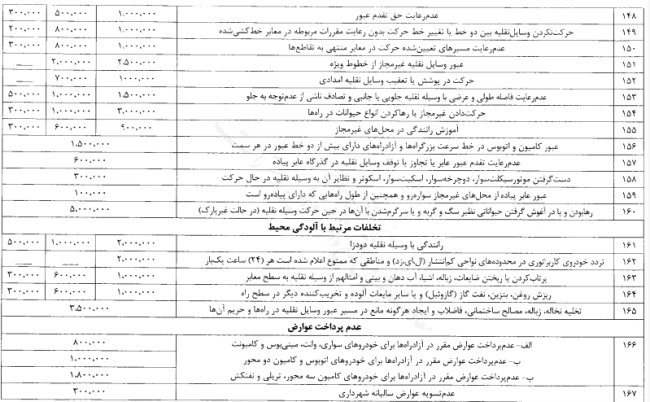 ۱۴۸ عدم‌رعایت حق تقدم عبور ۱.۰۰۰.۰۰۰ ۵۰۰.۰۰۰ ۳۰۰.۰۰۰
۱۴۹ حرکت‌نکردن وسایل‌نقلیه بین دو خط یا تغییر خط حرکت بدون رعایت مقررات مربوطه در معابر خط‌کشی‌شده ۱.۰۰۰.۰۰۰ ۸۰۰.۰۰۰ ۲۰۰.۰۰۰
۱۵۰ عدم‌رعایت مسیرهای تعیین‌شده حرکت در معابر منتهی به تقاطع‌ها ۱.۰۰۰.۰۰۰ ۸۰۰.۰۰۰ ۳۰۰.۰۰۰
۱۵۱ عبور وسایل نقلیه غیرمجاز از خطوط ویژه ۲.۵۰۰.۰۰۰ ۲.۰۰۰.۰۰۰ ــــ
۱۵۲ حرکت در پوشش یا تعقیب وسایل نقلیه امدادی ۱۰۰۰.۰۰۰ ۷۰۰.۰۰۰ ــــ
۱۵۳ عدم‌رعایت فاصله طولی و عرضی با وسیله نقلیه جلویی یا جانبی و تصادف ناشی از عدم‌توجه به جلو ۱.۵۰۰.۰۰۰ ۱.۰۰۰.۰۰۰ ۵۰۰.۰۰۰
۱۵۴ حرکت‌دادن غیرمجاز یا رهاکردن انواع حیوانات در راه‌ها ۳.۰۰۰.۰۰۰ ۱.۰۰۰.۰۰۰ ۳۰۰.۰۰۰
۱۵۵ آموزش رانندگی در محل‌های غیرمجاز ۹۰۰.۰۰۰ ۶۰۰.۰۰۰ ۳۰۰.۰۰۰
۱۵۶ عبور کامیون و اتوبوس در خط سرعت بزرگراه‌ها و آزادراه‌های دارای بیش از دو خط عبور در هر سمت ۱.۵۰۰.۰۰۰
۱۵۷ عدم‌رعایت تقدم عبور عابر یا تجاوز یا توقف وسایل نقلیه در گذرگاه عابر پیاده ۶۰۰.۰۰۰
۱۵۸ دست‌گرفتن موتورسیکلت‌سوار، دوچرخه‌سوار، اسکیت‌سوار، اسکوتر و نظایر آن به وسیله نقلیه در حال حرکت ۳۰۰.۰۰۰
۱۵۹ عبور عابر پیاده از محل‌های غیرمجاز سواره‌رو و همچنین از طول راه‌هایی که دارای پیاده‌رو است ۱۰۰.۰۰۰
۱۶۰ رهابودن و یا در آغوش گرفتن حیواناتی نظیر سگ و گربه و یا سرگرم‌شدن با آن‌ها در حین حرکت وسیله نقلیه (در حالت غیرپارک) ۵.۰۰۰.۰۰۰
تخلفات مرتبط با آلودگی محیط
۱۶۱ رانندگی با وسیله نقلیه دودزا ۲.۰۰۰.۰۰۰ ۱.۰۰۰.۰۰۰ ۵۰۰.۰۰۰
۱۶۲ تردد خودروی کاربراتوری در محدوده‌های نواحی کم‌انتشار (ال.ای.زد) و مناطقی که ممنوع اعلام شده است هر (۲۴) ساعت یک‌بار ۲.۰۰۰.۰۰۰ ــــ ــــ
۱۶۳ پرتاب‌کردن یا ریختن ضایعات، زباله، اشیا، آب دهان و بینی و امثالهم از وسیله نقلیه به سطح معابر ۱.۰۰۰.۰۰۰ ۶۰۰.۰۰۰ ۳۰۰.۰۰۰
۱۶۴ ریزش روغن، بنزین، نفت گاز (گازوئیل) و یا سایر مایعات آلوده و تخریب‌کننده دیگر در سطح راه ۱.۰۰۰.۰۰۰ ۶۰۰.۰۰۰ ۳۰۰.۰۰۰
۱۶۵ تخلیه نخاله، زباله، مصالح ساختمانی، فاضلاب و ایجاد هرگونه مانع در مسیر عبور وسایل نقلیه در راه‌ها و حریم آن‌ها ۳.۵۰۰.۰۰۰
عدم پرداخت عوارض
۱۶۶ الف- عدم‌پرداخت عوارض مقرر در آزادراه‌ها برای خودروهای سواری، وانت، مینی‌بوس و کامیونت ۸۰۰.۰۰۰
ب- عدم‌پرداخت عوارض مقرر در آزادراه‌ها برای خودروهای اتوبوس و کامیون دو محور ۱.۰۰۰.۰۰۰
پ- عدم‌پرداخت عوارض مقرر در آزادراه‌ها برای خودروهای کامیون سه محور، تریلی و نفتکش ۱.۸۰۰.۰۰۰
۱۶۷ عدم‌تسویه عوارض سالیانه شهرداری ۳۰۰.۰۰۰